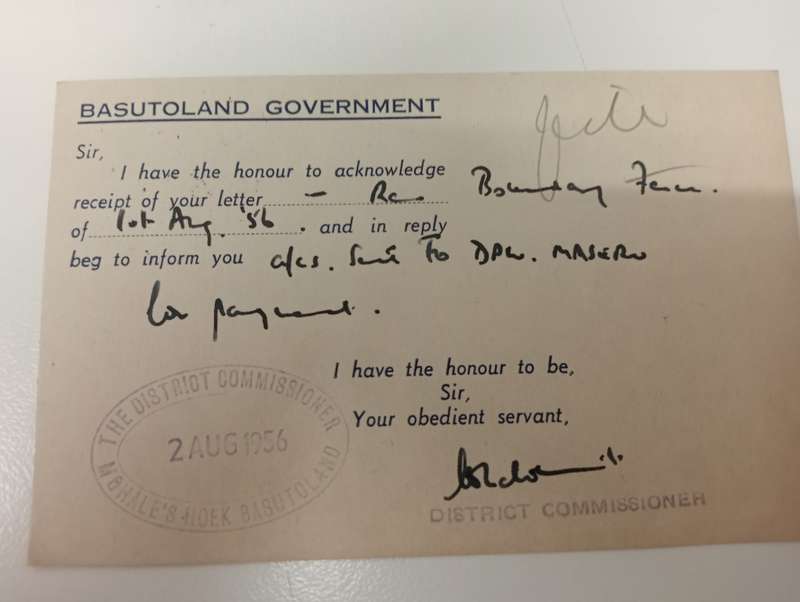 BASUTOLAND GOVERNMENT
Sir,
I have the honour to acknowledge
receipt of your letter - Re. Boundary Fence.
of 1st Aug. '56. and in reply
beg to inform you a/cs. sent to DPW. MASERU
for payment.
I have the honour to be,
Sir,
Your obedient servant,
THE DISTRICT COMMISSIONER
2 AUG 1956
MOHALE'S HOEK BASUTOLAND
DISTRICT COMMISSIONER